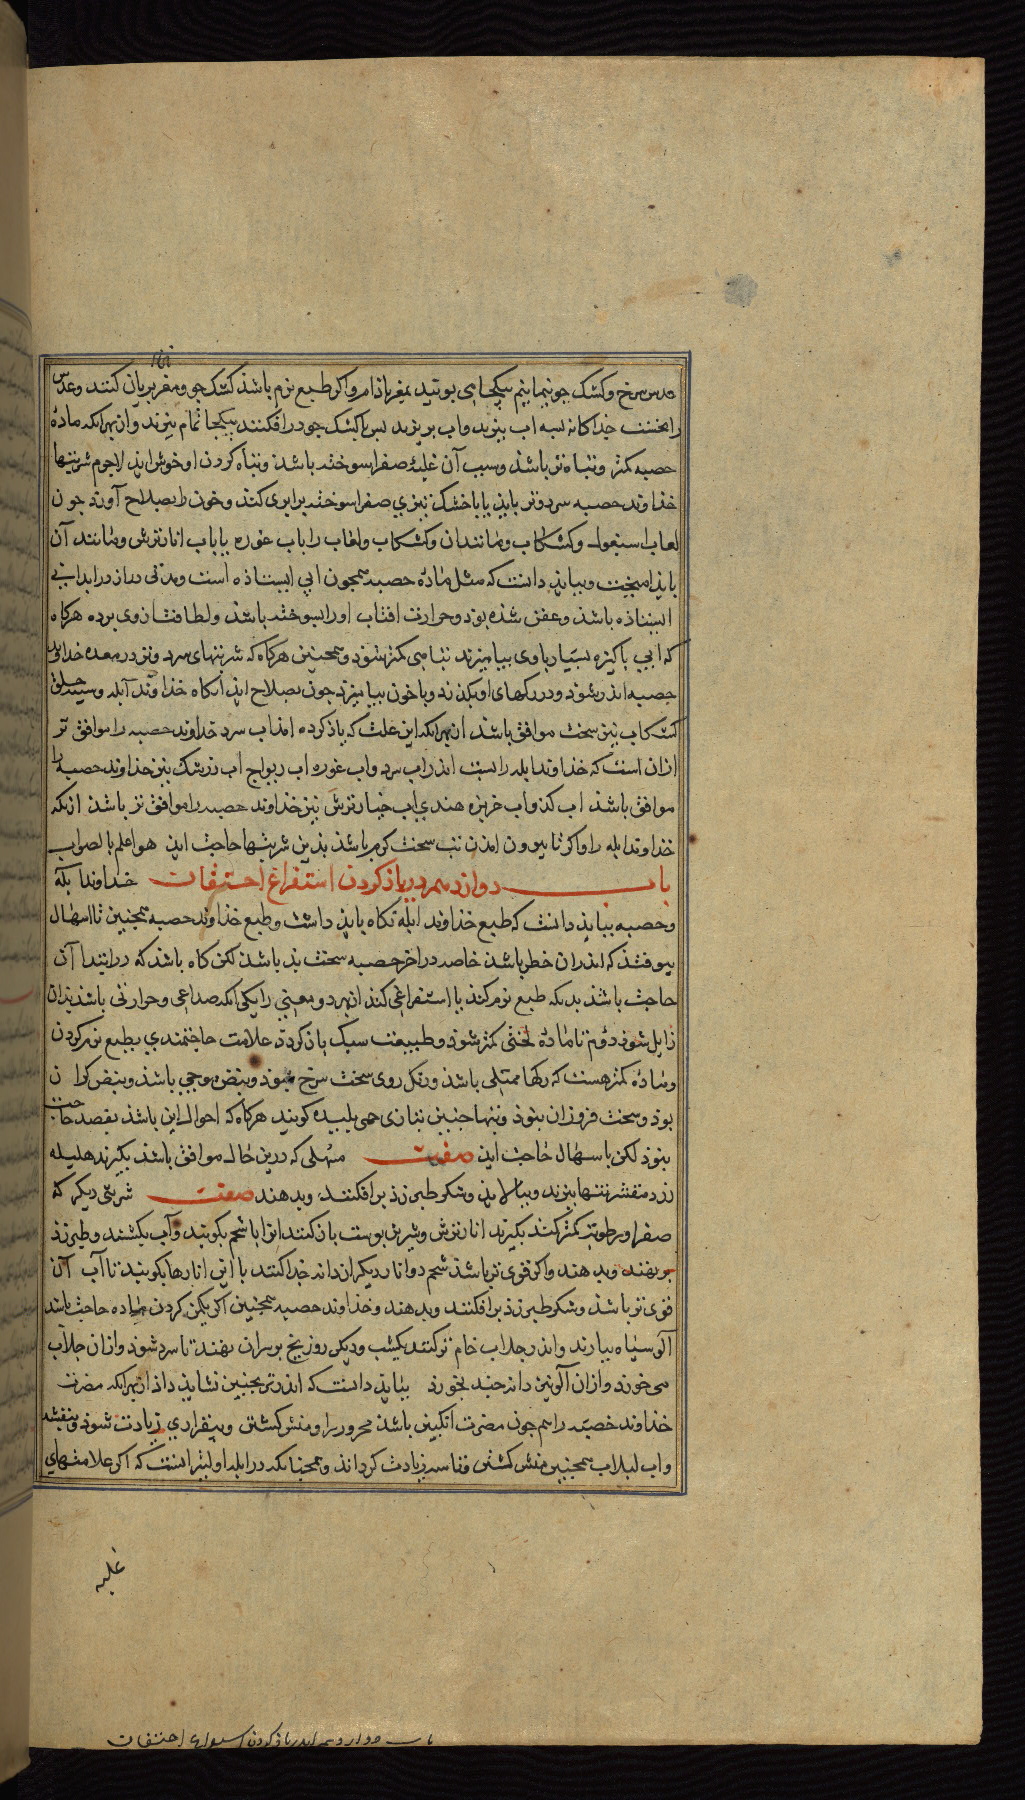 عدس سرخ و کشک جو نیمانیم بیکجای بپزند بمغز بادام و اکر طبع نرم باشد کشک جو و مغز بریان کنند و عدس
را بخست جداکانه بسه اب بپزند و اب بریزند بس با کشک جو درافکنند بیکجا تمام بپزند و از بهر انکه مادۀ
حصبه کمتر و تباه تر باشد و سبب آن غلبۀ صفرا سوخته باشد و تباه کردن او خون را لاجرم شربتها
خداوند حصبه سرد و تر باید یا با خشک تیزی صفرا سوخته برابری کند و خون را بصلاح آورد جون
لعاب اسبغول و کشکاب و مانند ان و کشکاب و لعاب را باب غوره یا باب انار ترش و مانند آن
باید امیخت و بباید دانست که مثل مادۀ حصبه همجون ابی ایستاده است و مدتی دراز در ابدانی
ایستاده باشد و عفن شده بود و حرارت افتاب او را بسوخته باشد و لطافت از وی برده هرکاه
که ابی باکیزه بسیار با وی بیامیزند تباهی کمتر شود و همجنین هرکاه که شربتهای سرد و تر در معده خداوند
حصبه اندر شود و در رکهای او بکذرد و با خون بیامیزد جون بصلاح اید آنکاه خداوند آبله و سینه و حلق
کشکاب نیز سخت موافق باشد از بهر انکه این علت که یاد کرده امد اب سرد خداوند حصبه را موافق تر
ازان است که خداوند ابله را بست اندر اب سرد و اب غوره اب ریواج اب زرشک نیز خداوند حصبه را
موافق باشد اب کدو اب خربزه هندی اب خیار ترش نیز خداوند حصبه را موافق تر باشد از انکه
خداوند ابله را و اکر تا بیرون امدن تب سخت کرم باشد بدین شربتها حاجت اید هو اعلم بالصواب
باب دوازدهم در یاذ کردن استفراغ احتیقات خداوند ابله
و حصبه بباید دانست که طبع خداوند ابله نکاه باید داشت و طبع خداوند حصبه همجنین تا اسهال
نیوفتد که اندران خطر باشد خاصه در اخر حصبه سخت بد باشد لکن کاه باشد که در ابتدا آن
حاجت باشد بدانکه طبع نرم کند یا استفراغی کند از بهر دو معنی را یکی انکه صداعی و حرارتی باشد بدان
زایل شود دوم تا مادۀ لختی کمتر شود و طبیعت سبک بار کردد علامت حاجتمندی بطبع نرم کردن
و مادۀ کمتر هست که رکها ممتلی باشد و رنک روی سخت سرخ نبود و نبض موجی باشد و نبض کران
بود و سخت فروزان نبود و تبها جنین تبها تازی حمی بلیده کویند هرکاه که احوال این باشد بفصد حاجت
نبود لکن باسهال حاجت اید صفت مسهلی که درین حال موافق باشد بکیرند هلیله
زرد مقشر تنها بپزند و ببالایند و شکر طبرزد برافکنند و بدهند صفت شربتی دیکر که
صفرا و رطوبت کمتر کند بکیرند انار ترش و شیرین بوست باز کنند انرا با شحم بکوبند و آب بکشند و طبرزد
برنهند و بدهند و اکر قوی تر باشد شحم دو انار دیکر از دانه جدا کنند با این انارها بکوبند تا آب آن
قوی تر باشد و شکر طبرزد برافکنند و بدهند و خداوند حصبه همجنین اکر یکن کردن ماده حاجت باشد
آلو سیاه بیارند و اندر جلاب خام تر کنند یکشب و دیکر روز یخ بر سر ان نهند تا سرد شود و ازان جلاب
می خورد و ازان آلو نیز دانه جند بخورد بباید دانست که اندر ترنجبین نشاید داد از بهر انکه مضرت
خداوند حصبه را هم جون مضرت انکبین باشد محرور را و منش کشتن و بیقراری زیادت شود و بنفشه
و اب لبلاب همجنین منش کشتن و تاسه زیادت کرداند و همجنانکه در ابله اولیتر انست که اکر علامتهای
غلبه
باب دوازدهم اندر یاذ کردن احتیقات